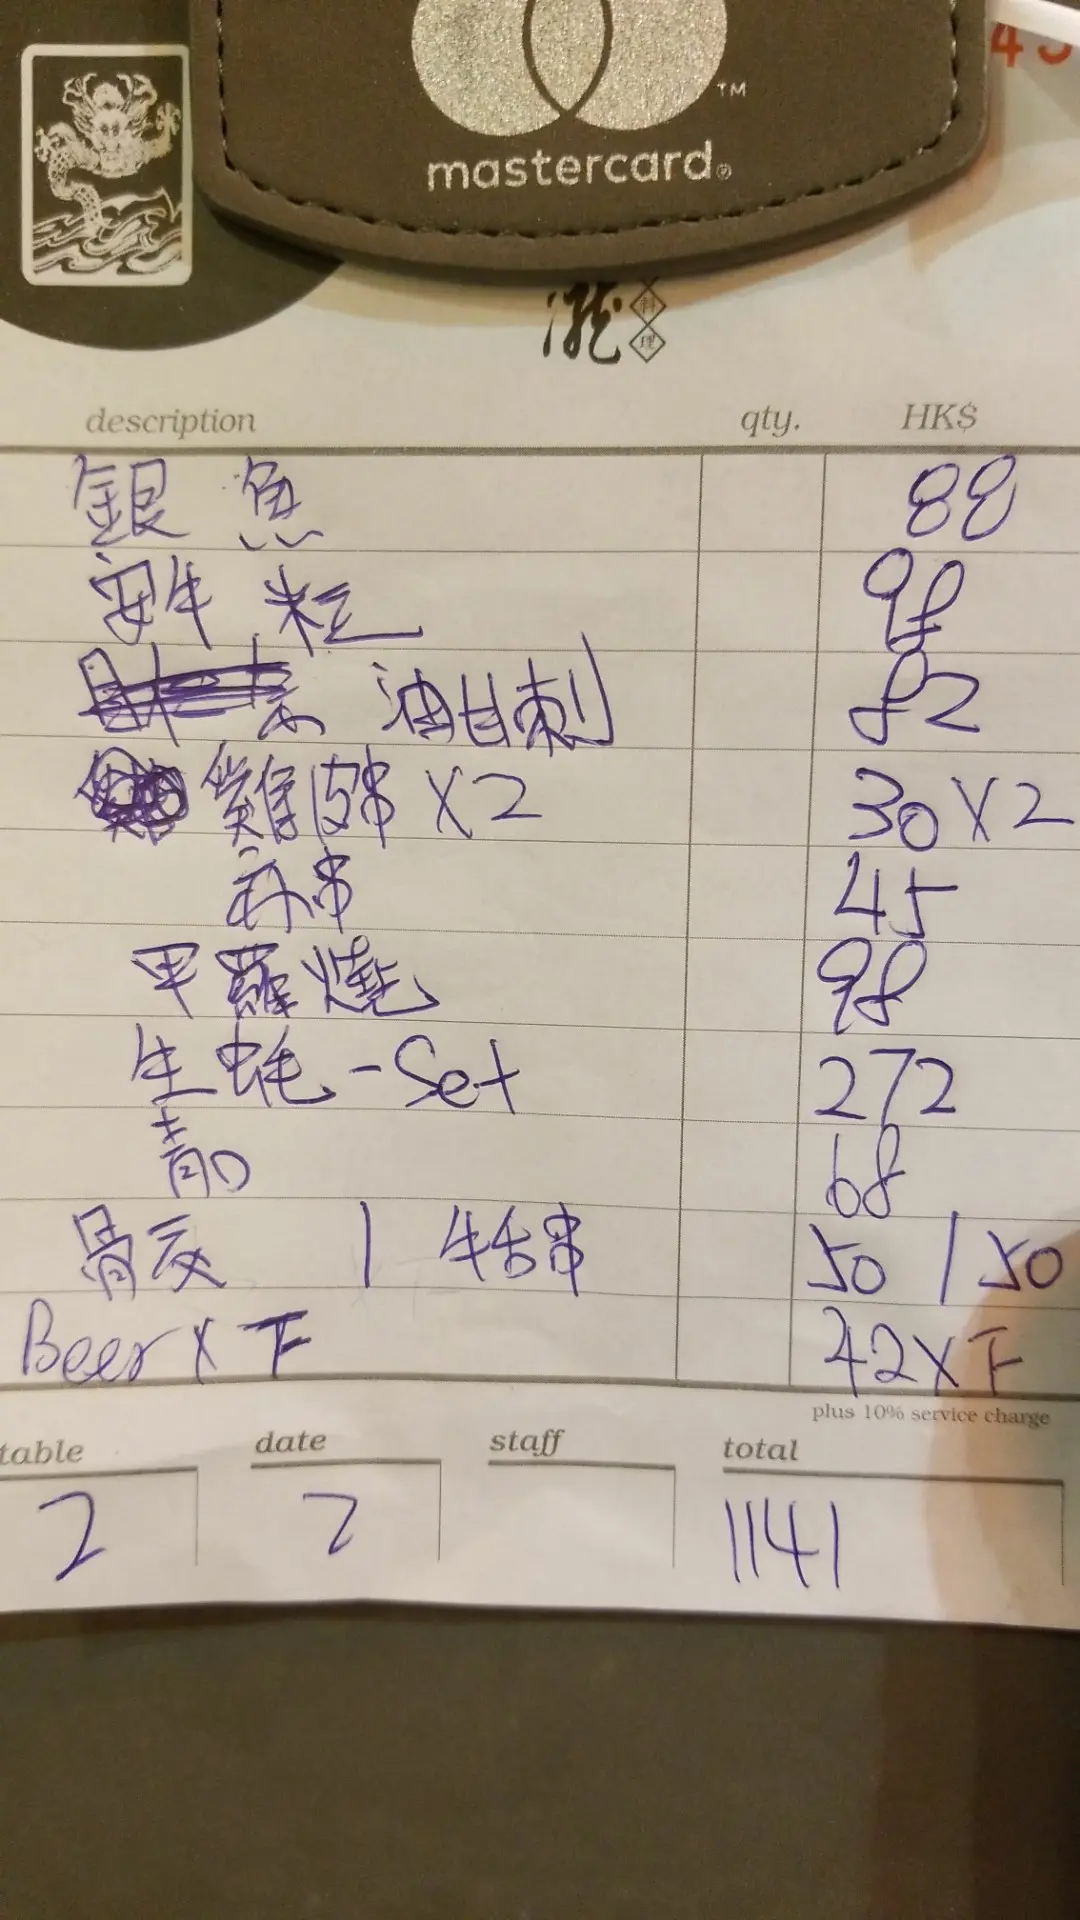 45
mastercard®
™
瀧 料理
description qty. HK$
銀魚 88
安牛粒 98
油甘刺 82
雞皮串 X2 30 X 2
45
甲羅燒 98
生蚝-Set 272
68
骨 | 串 50 / 50
Beer X 下 42 X 下
plus 10% service charge
table date staff total
2 2 1141